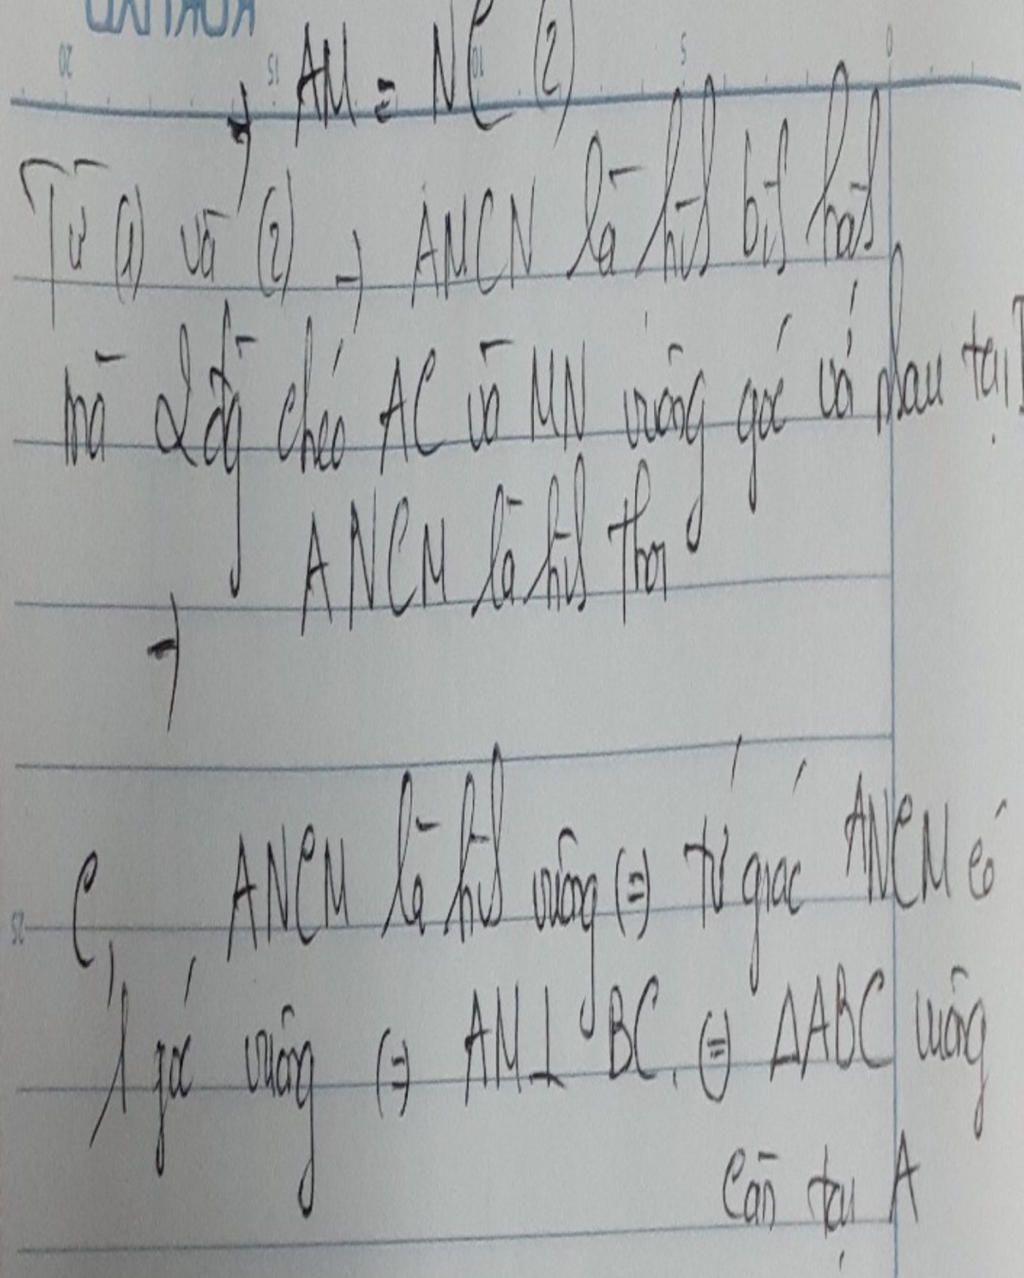 → AM = NC (2)
Từ (1) và (2) → AMCN là hình bình hành
mà 2 đg chéo AC và MN vuông góc với nhau tại I
→ ANCM là hình thoi
C, ANCM là hình vuông (=) tứ giác ANCM có
1 góc vuông (=) AN ⊥ BC. (=) ΔABC vuông
cân tại A